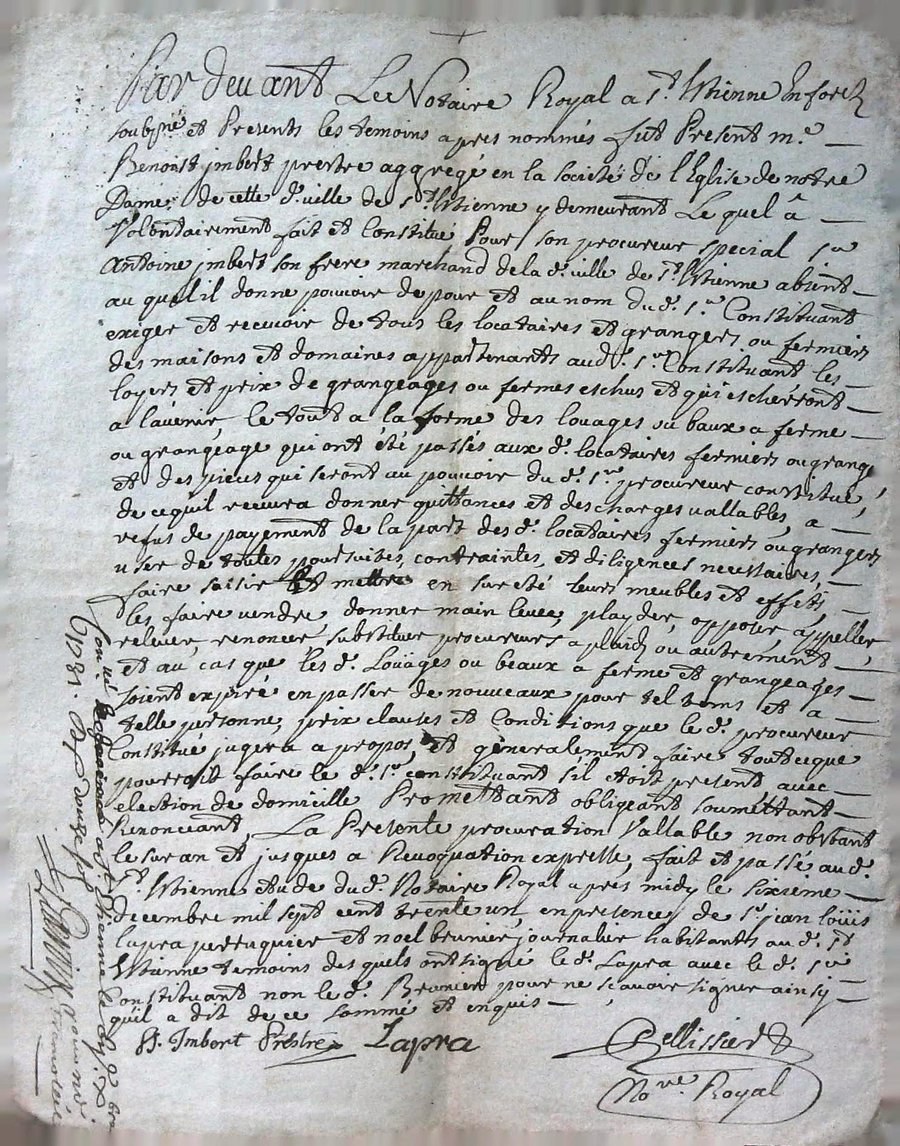 Par devant Le Notaire Royal a St Etienne En forez
soubsné et Presents les temoins apres nommés fut Present me
Benoist imbert prestre aggrégé en la societé de l'Eglise de notre
Dame de cette d. ville de St Etienne y demeurant Le quel a
Volontairement fait et Constitue Pour son procureur special sr
Antoine imbert son frere marchand de la d. ville de St Etienne absent
au quel il donne pouvoir de pour et au nom du d. sr Constituant
exiger et recevoir de tous les locataires et grangers ou fermiers
des maisons et domaines appartenants aud. sr Constituant les
loyers et prix de grangeages ou fermes eschus et qui escherront
a l'avenir, le tout a la forme des louages ou baux a ferme
ou grangeage qui ont été passés aux d. locataires fermiers ou grang
et des pieces qui seront au pouvoir du d. sr procureur constitué,
de ce quil recevra donner quittances et descharges vallables, a
refus de payement de la part des d. locataires fermiers ou grangers
user de toutes poursuites, contraintes, et diligences necessaires,
faire saisir et mettre en sureté leurs meubles et effets
les faire vendre, donner main levée, playder, opposer, appeller,
relever, renoncer substituer procureurs a plaids ou autrement
et au cas que les d. Loüages ou beaux a ferme et grangeages
soient expiré en passer de nouveaux pour tel tems et a
telle personne, prix clauses et Conditions que le d. procureur
Constitué jugera a propos, et generalement faire tout ce que
pourroit faire le d. sr constituant s'il etoit present, avec
election de domicille Promettant obligeant soumettant
Renonceant, La Presente procuration Vallable non obstant
le sur an et jusques a Revoquation expresse, fait et passé au d.
St Etienne etude du d. Notaire Royal apres midy le sixieme
decembre mil sept cent trente un, en presence de sr jean loüis
lapra perruquier et noel brunier journalier habitants au d. St
Etienne temoins des quels ont signé le d. Lapra avec le d. sr
Constituant non le d. Brunier pour ne scavoir signer ainsy
qu'il a dit de ce sommé et enquis
B. Imbert Prestre Lapra
Pellissier
Nore Royal
a St Etienne le
1731. douze s.